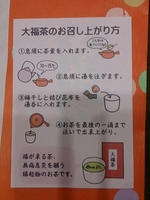 大福茶のお召し上がり方
①急須に茶葉を入れます。
②急須に湯を注ぎます。
③梅干しと結び昆布を
湯呑に入れます。
④お茶を最後の一滴まで
注いで出来上がり。
福が来る茶、
無病息災を願う
縁起物のお茶です。
大福茶